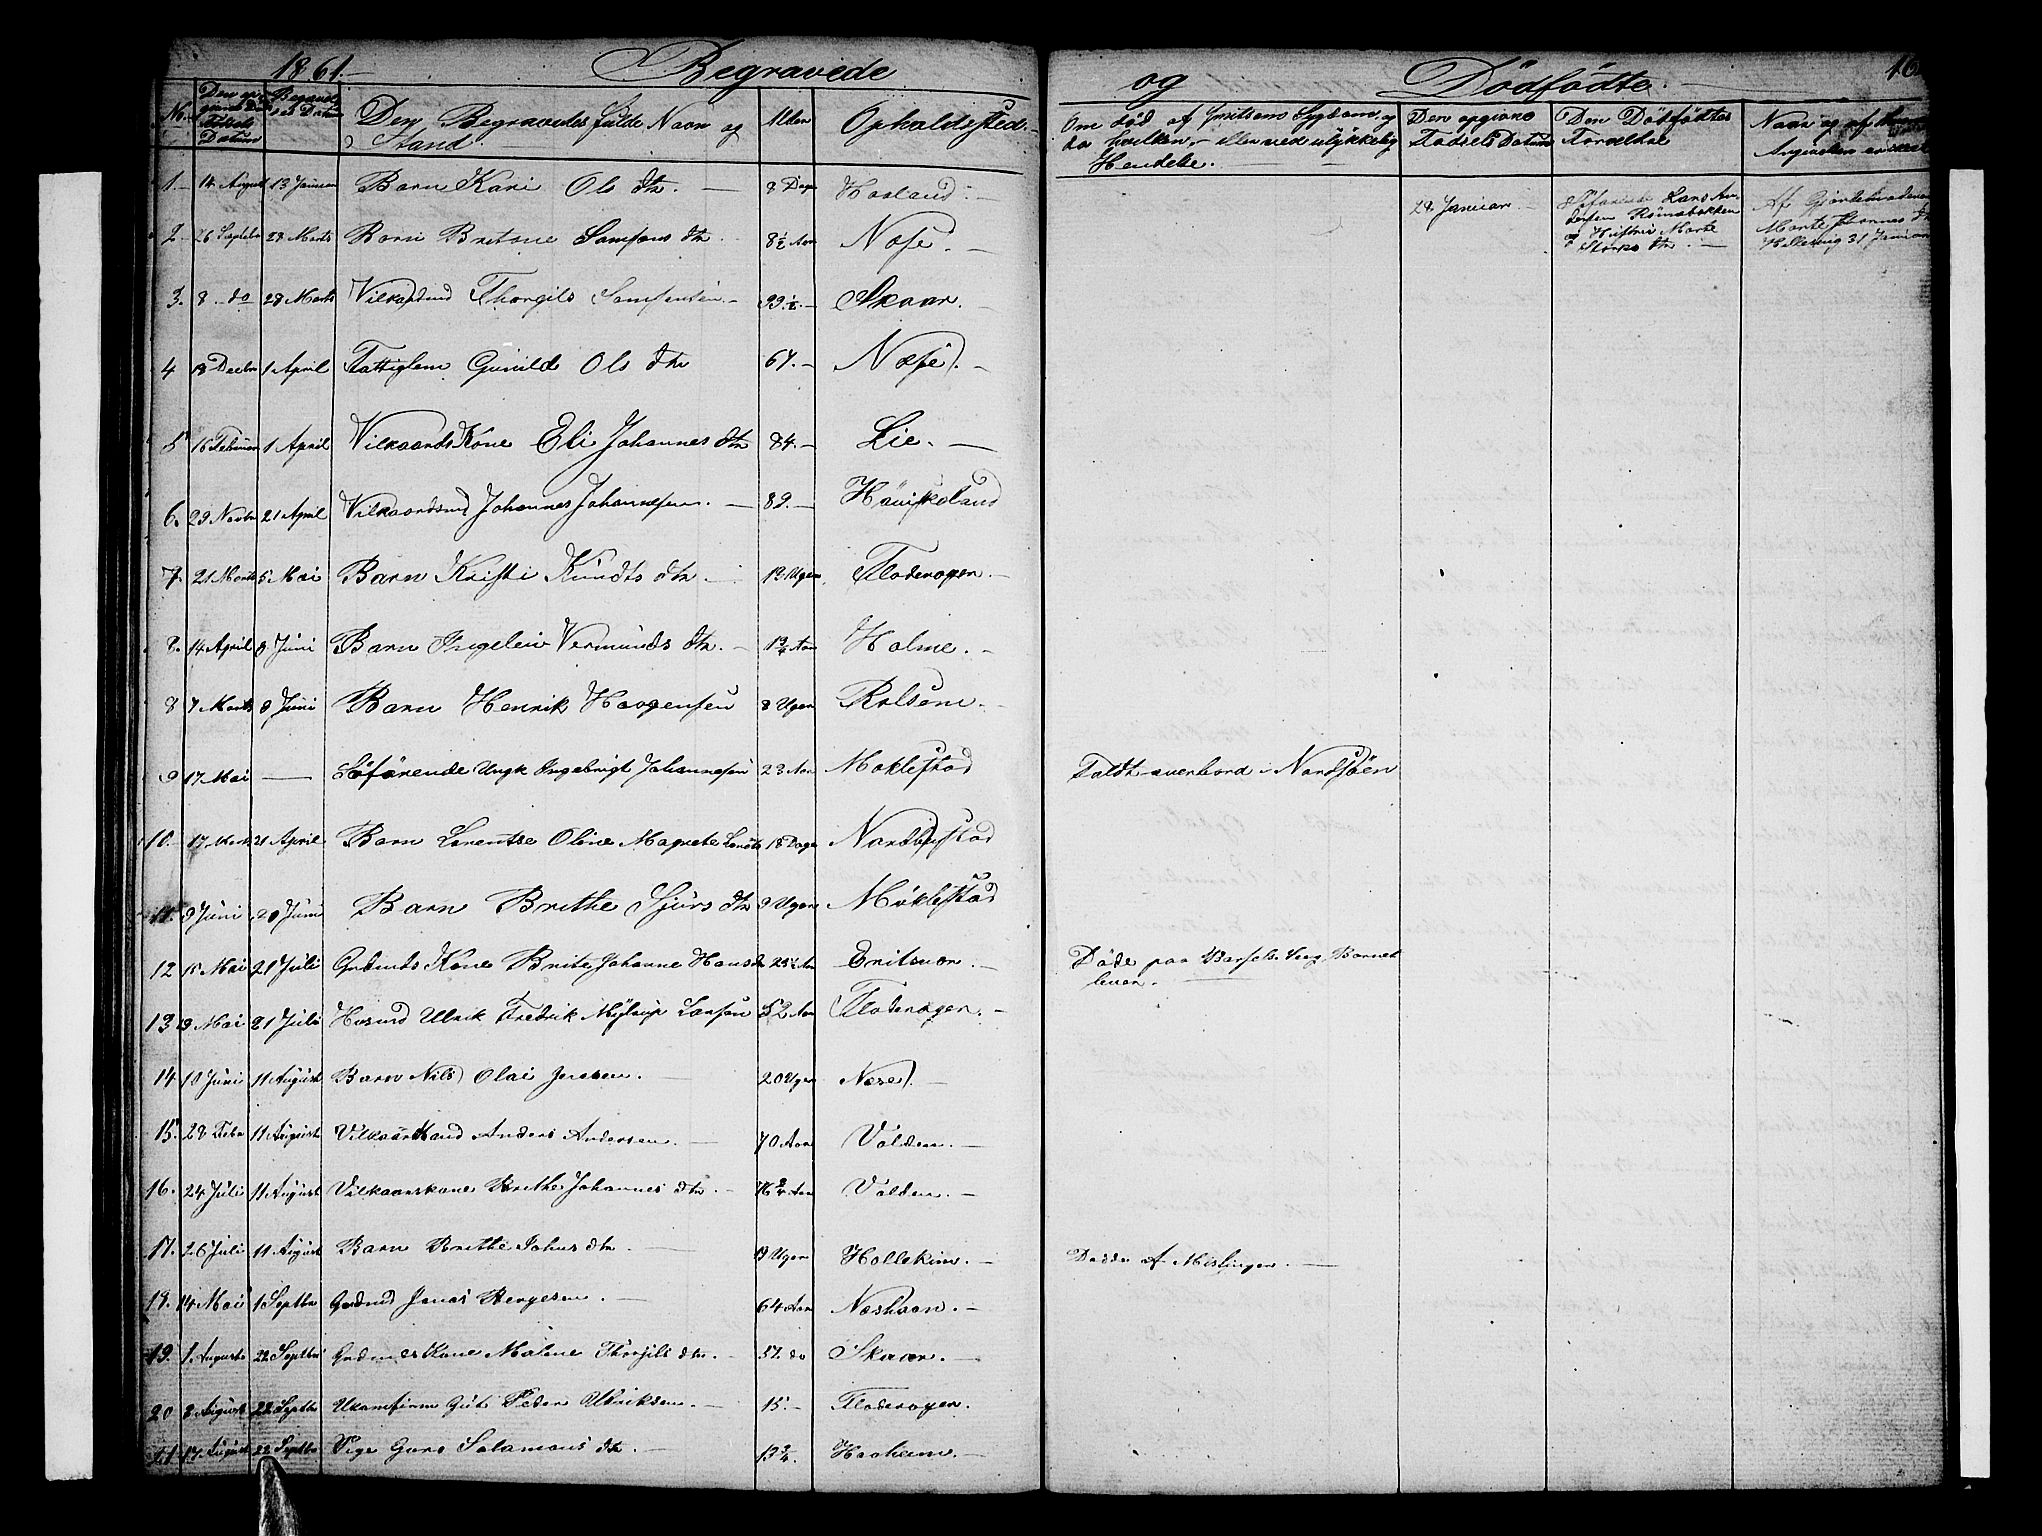 1861.
Begravede
og
Dödfödte.
16
No.
Den op
givne Döds
Datum
Begravel
ses Datum
Den Begravedes fulde Navn og
Stand.
Alder
Opholdssted.
Om död af Smitsom Sygdom, og
da hvilken, – eller ved ulykkelig
Hendelse.
Den opgivne
Födsels Datum
Den Dödfödtes
Forældre
Naar og af hvem
1 14 August 13 Januar Barn Kari Ols dtr. 8 Dage Havland.
28 Januar.
Lars An-
dersen Römsbakken
og Hustru Marte
dtr.
Af Gjordemoderen
Marte Thomas dtr
Hellevig 31 Januar
2 26 Septbr 28 Marts Barn Bretone Samsons dtr. 8½ Aar Nose.
3. 8 do 28 Marts Vilkaarsmd Thorgils Samsonsen 93.½. Skaar.
4 18 Decbr 1 April Fattiglem Gunild Ols dtr 67. Nose.
5 16 Februar 1 April Vilkaards Kone Eli Johannes dtr 84. Lie.
6. 29 Novbr 21 April Vilkaardsmd Johannes Johannesen. 89. Höviskeland
7. 21 Marts 5 Mai Barn Kristi Knudts dtr. 13 Uger Floderogen.
8. 14 April 9 Juni Barn Ingeleiv Vermunds dtr. 1¾ Aar Holme.
8 7 Marts 9 Juni Barn Henrik Haagensen 8 Uger Rolsem.
9 17 Mai Söfarende Ungk Ingebrigt Johannesen 23 Aar Moklestad
Faldt overbord i Nordsöen
10. 17 Marts 21 April Barn Lorentse Oline Magrete 18 Dage Nordbustad
11. 9 Juni 20 Juni Barn Brithe Sjurs dtr 9 Uger Möklestad
12 15 Mai 21 Juli Grdmds Kone Brite Johanne Hans dr 23½ Aar Eritsvor.
Döde paa Barsels Seng Barnet
lever.
13 19 Mai 21 Juli Husmd Ulrik Fredrik Myltrup Larsen 52 Aar Floderogen.
14 10 Juni 11 August Barn Nils Olai Jensen. 20 Uger Nose.
15. 28 Febr 11 August Vilkaarsmand Anders Andersen. 70 Aar Volden.
16. 24 Juli 11 August Vilkaarskone Brithe Johannes dtr. 76¾ Aar Volden.
17. 26 Juli 11 August Barn Brithe Johns dtr. 19 Uger Hollekim.
Dödde Af Meslinger.
18. 14 Mai 1 Septbr Grdmd Jonas Bergesen. 64 Aar Neshaan.
19. 1 August 22 Septbr Grdmds Kone Malene Thorgils dtr. 57. do Skaar.
20 8 August 22 Septbr Ukonfirm Gut Peder Ulriksen. 15. Floderogen.
21 17 August 22 Septbr Pige Guro Salamons dtr. 13¾. Haaheim.